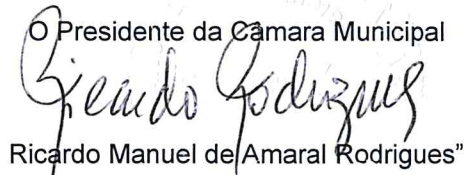 O Presidente da Câmara Municipal
Ricardo Rodrigues
Ricardo Manuel de Amaral Rodrigues”